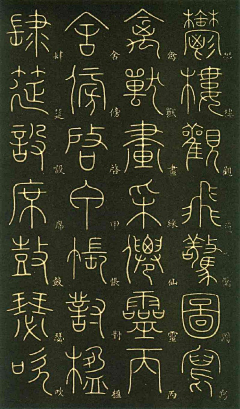 鬱樓觀飛驚圖寫
禽獸畫采僊靈丙
舍傍啓甲帳對楹
肆筵設席鼓瑟吹